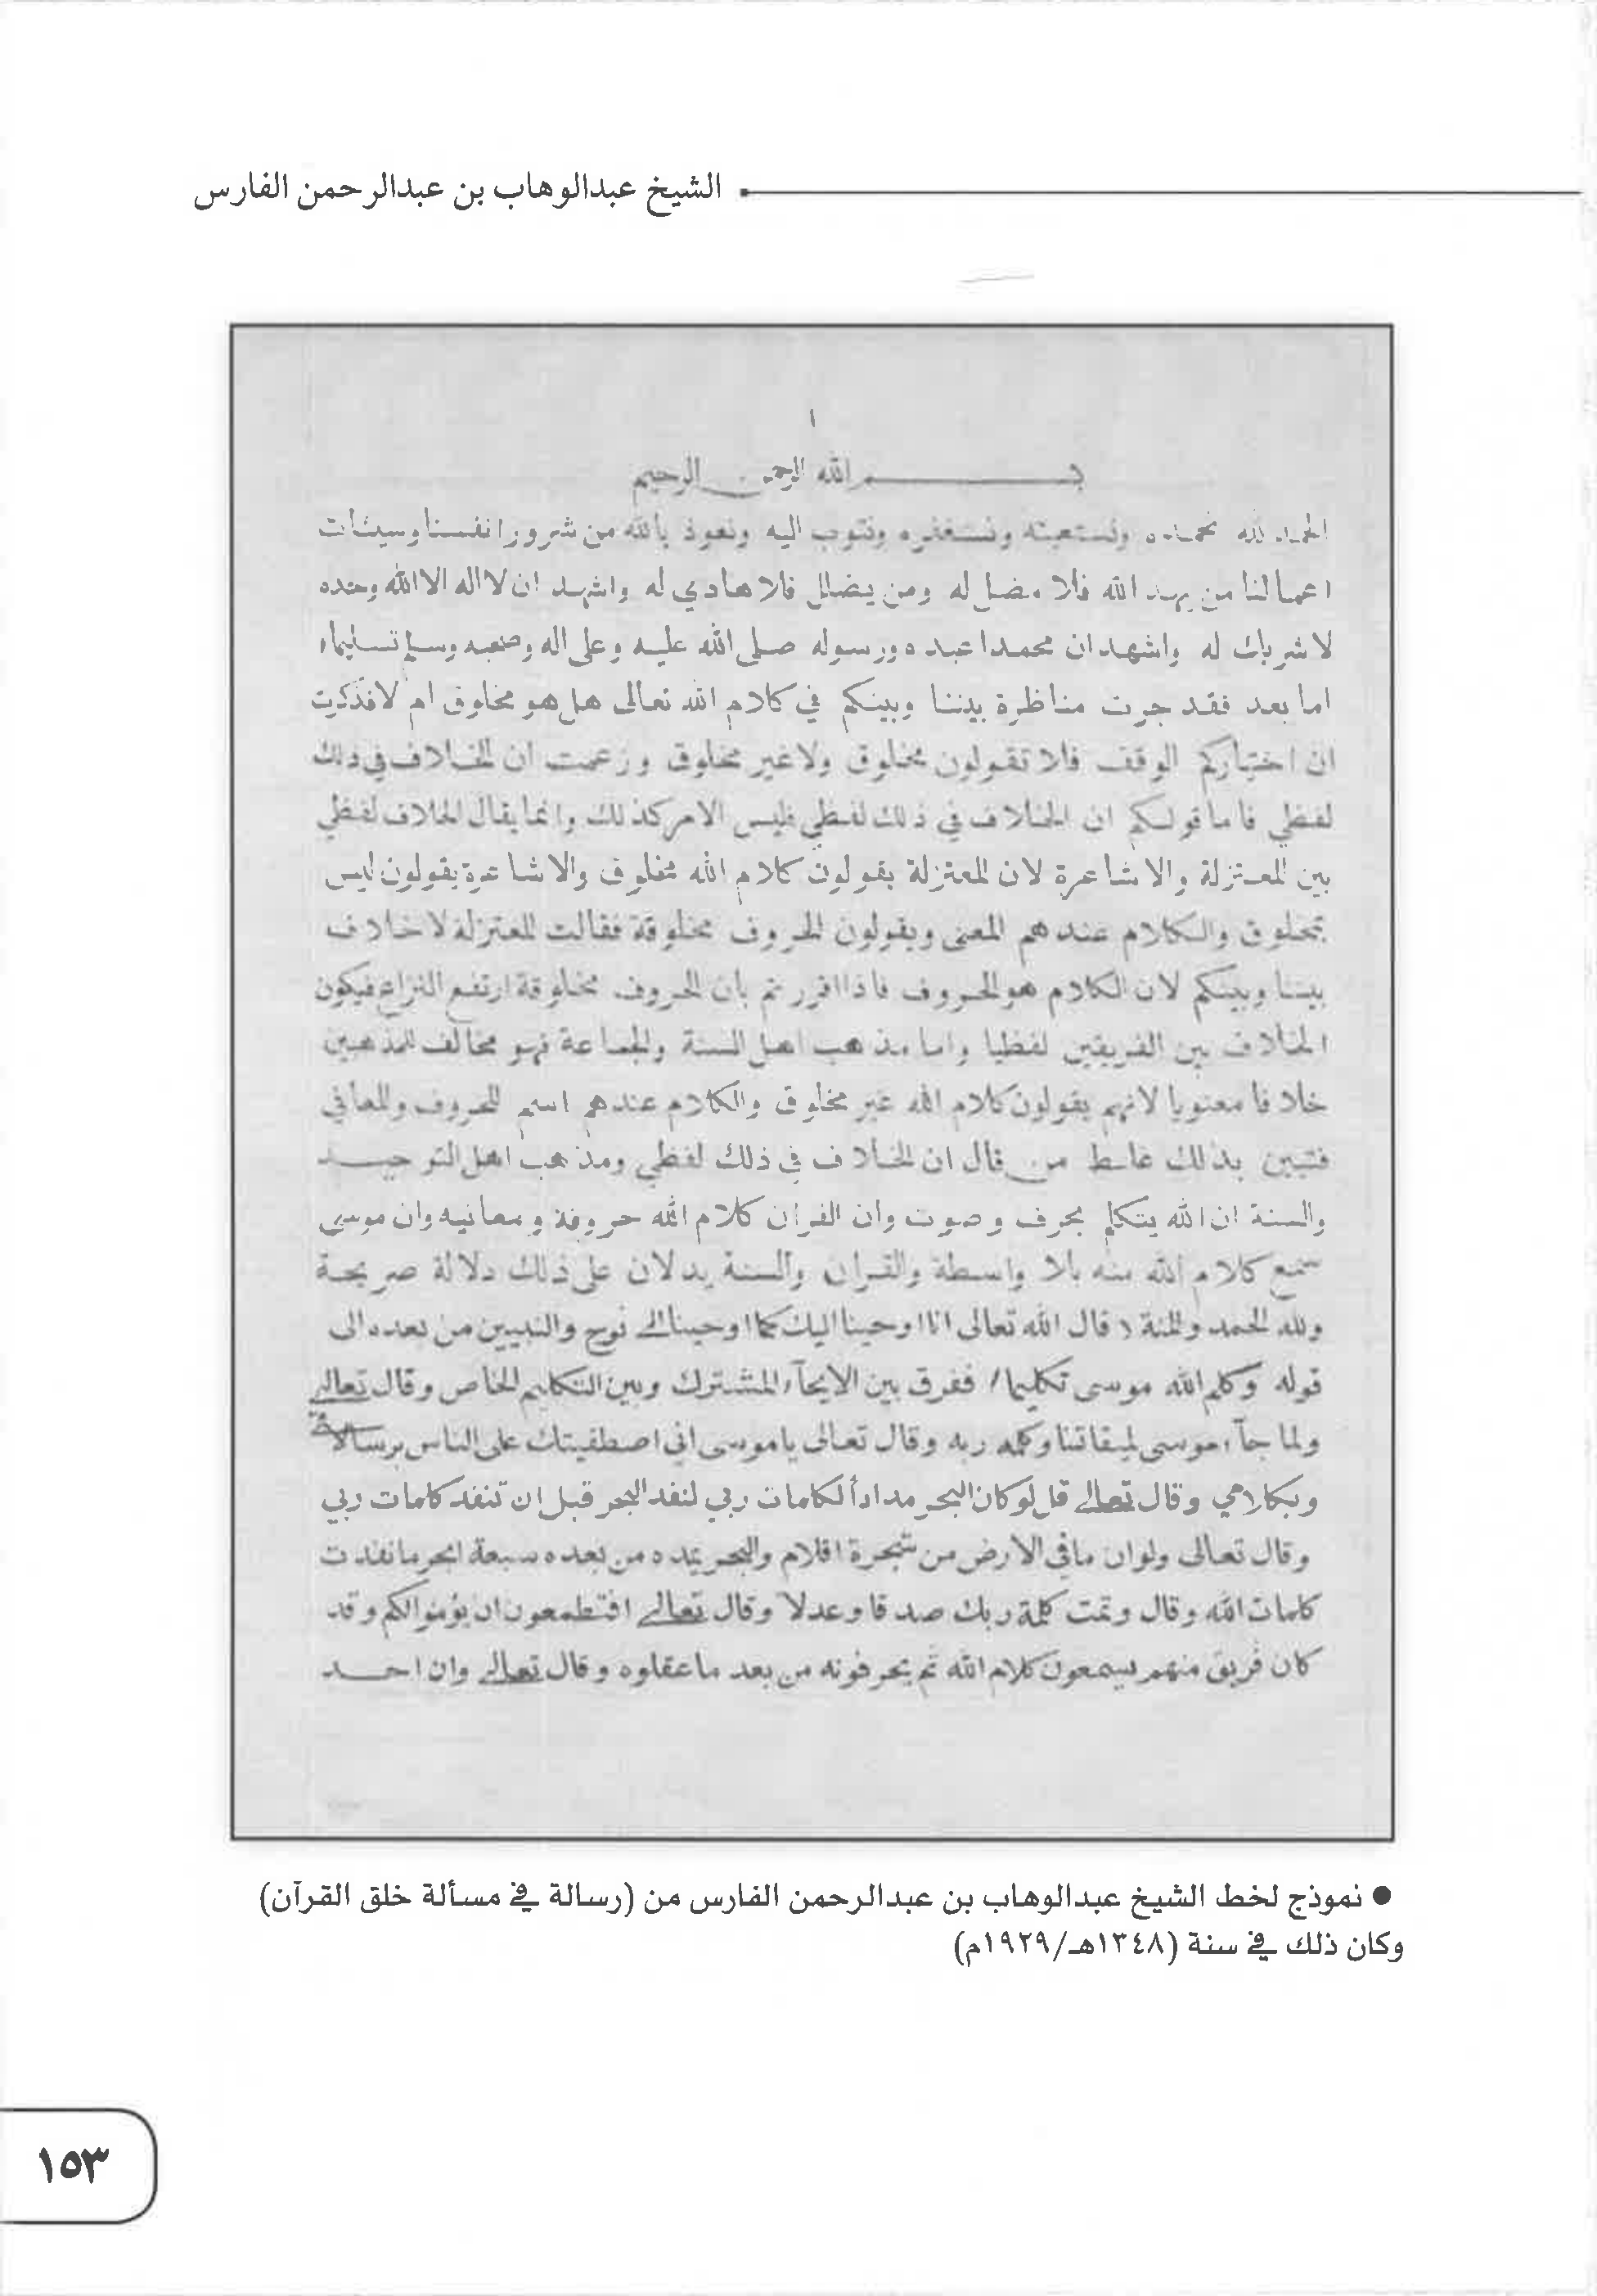 الشيخ عبدالوهاب بن عبدالرحمن الفارس
١
بسم الله الرحمن الرحيم
الحمد لله نحمده ونستعينه ونستغفره ونتوب اليه ونعوذ بالله من شرور انفسنا وسيئات
اعمالنا من يهد الله فلا مضل له ومن يضلل فلا هادي له واشهد ان لا اله الا الله وحده
لا شريك له واشهد ان محمدا عبده ورسوله صلى الله عليه وعلى اله وصحبه وسلم تسليما
اما بعد فقد جرت مناظرة بيننا وبينكم في كلام الله تعالى هل هو مخلوق ام لا فذكرت
ان اختياركم الوقف فلا تقولون مخلوق ولا غير مخلوق وزعمت ان الخلاف في ذلك
لفظي فاما قولكم ان الخلاف في ذلك لفظي فليس الامر كذلك وانما يقال الخلاف لفظي
بين المعتزلة والاشاعرة لان المعتزلة يقولون كلام الله مخلوق والاشاعرة يقولون ليس
بمخلوق والكلام عندهم المعنى ويقولون الحروف مخلوقة فقالت المعتزلة لا خلاف
بيننا وبينكم لان الكلام هو الحروف فاذا اقررتم بان الحروف مخلوقة ارتفع النزاع فيكون
الخلاف بين الفريقين لفظيا واما مذهب اهل السنة والجماعة فهو مخالف للمذهبين
خلافا معنويا لانهم يقولون كلام الله غير مخلوق والكلام عندهم اسم للحروف والمعاني
فتبين بذلك غلط من قال ان الخلاف في ذلك لفظي ومذهب اهل التوحيد
والسنة ان الله يتكلم بحرف وصوت وان القران كلام الله حروفه ومعانيه وان موسى
سمع كلام الله منه بلا واسطة والقران والسنة يدلان على ذلك دلالة صريحة
ولله الحمد والمنة قال الله تعالى انا اوحينا اليك كما اوحينا الى نوح والنبيين من بعده الى
قوله وكلم الله موسى تكليما ففرق بين الايحآء المشترك وبين التكليم الخاص وقال تعالى
ولما جآء موسى لميقاتنا وكلمه ربه وقال تعالى ياموسى اني اصطفيتك على الناس برسالاتي
وبكلامي وقال تعالى قل لو كان البحر مداداً لكلمات ربي لنفد البحر قبل ان تنفد كلمات ربي
وقال تعالى ولو ان ما في الارض من شجرة اقلام والبحر يمده من بعده سبعة ابحر ما نفدت
كلمات الله وقال وتمت كلمة ربك صدقا وعدلا وقال تعالى افتطمعون ان يؤمنوا لكم وقد
كان فريق منهم يسمعون كلام الله ثم يحرفونه من بعد ما عقلوه وقال تعالى وان احد
● نموذج لخط الشيخ عبدالوهاب بن عبدالرحمن الفارس من (رسالة في مسألة خلق القرآن)
وكان ذلك في سنة (١٣٤٨هـ/١٩٢٩م)
١٥٣